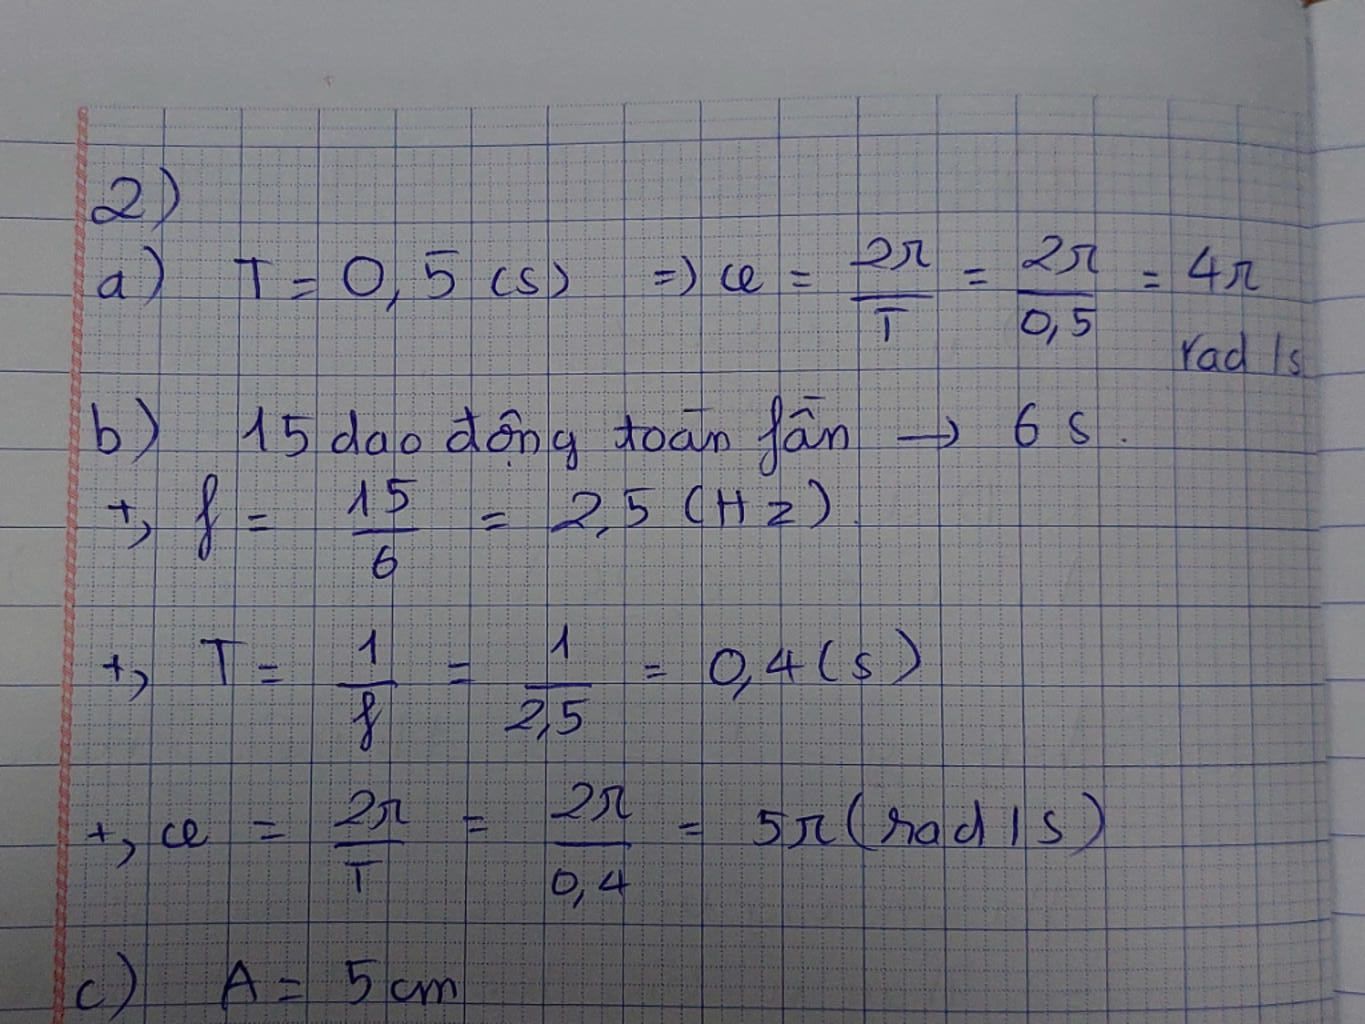 2)
a) T = 0,5 (s) => ω = 2π/T = 2π/0,5 = 4π
rad/s
b) 15 dao động toàn fần → 6 s.
+, f = 15/6 = 2,5 (Hz).
+, T = 1/f = 1/2,5 = 0,4 (s)
+, ω = 2π/T = 2π/0,4 = 5π (rad/s)
c) A = 5 cm